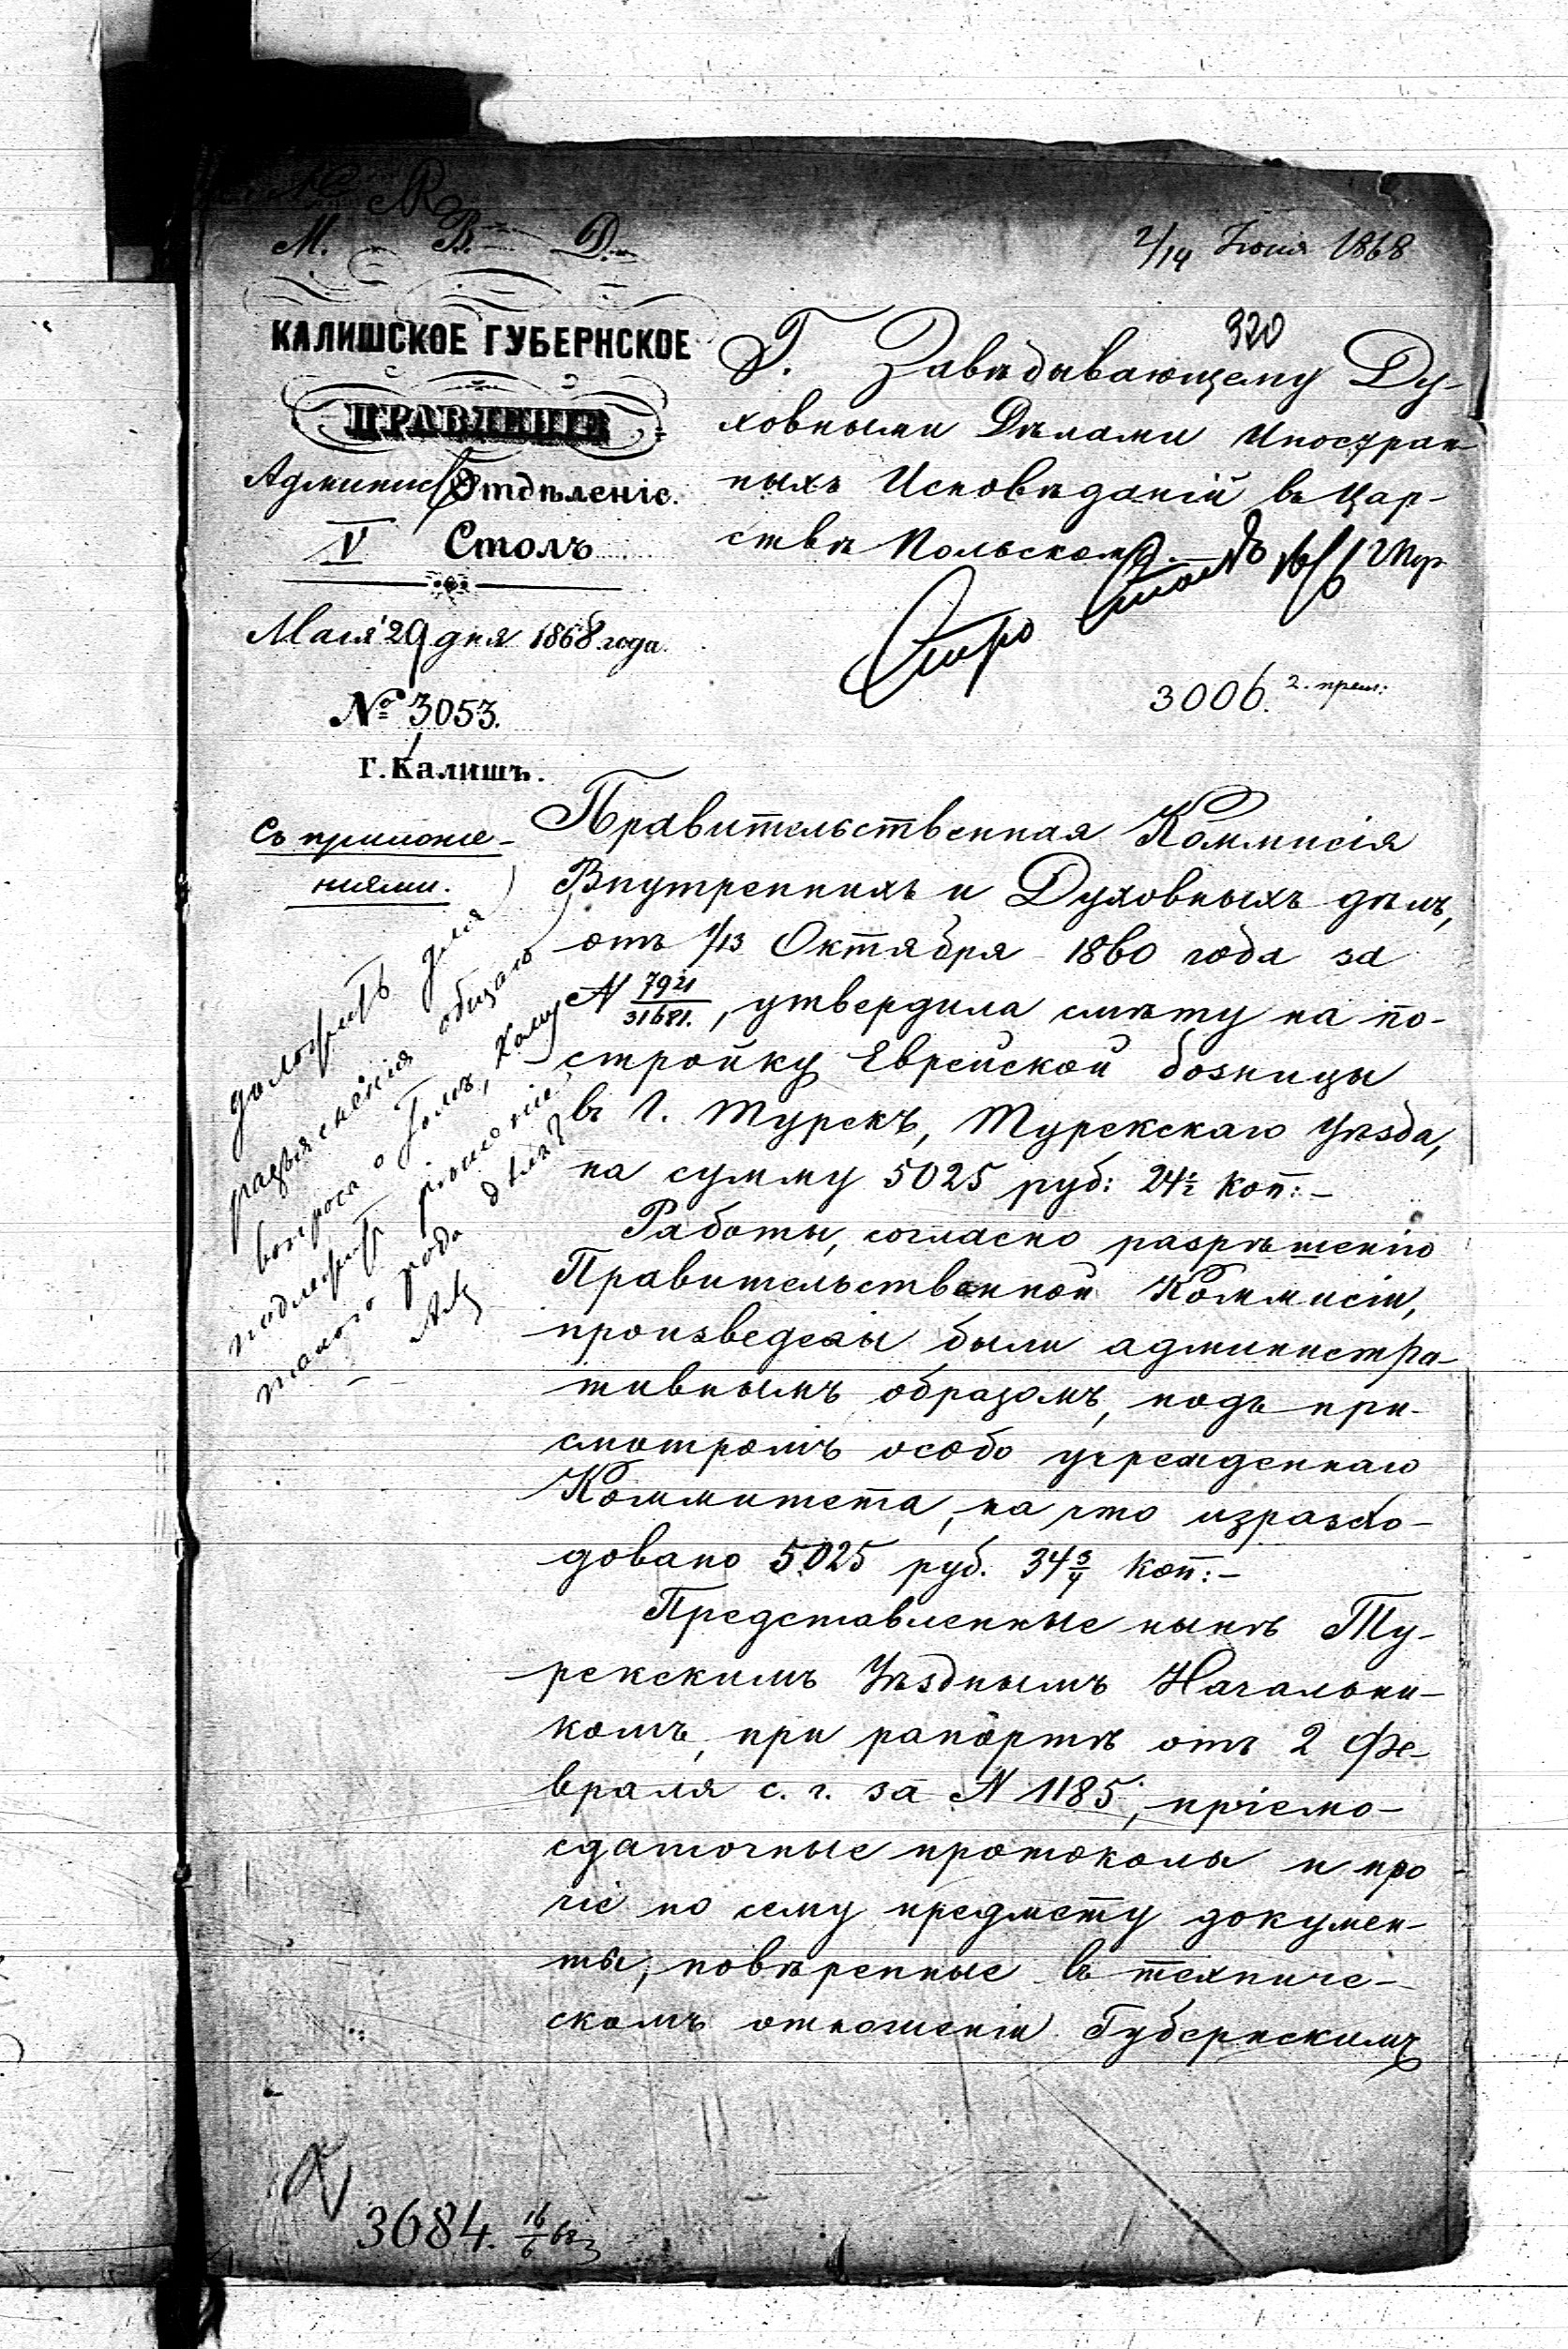 М. В. Д.
2/14 Іюня 1868
КАЛИШСКОЕ ГУБЕРНСКОЕ
ПРАВЛЕНІЕ
Админис Отдѣленіе.
V Столъ
Мая 29 дня 1868 года.
№ 3053.
Г. Калишъ.
Съ приложе-
ніями.
920
Г. Завѣдывающему Ду-
ховными Дѣлами Иностран
ныхъ Исповѣданій въ Цар-
ствѣ Польскомъ.
16/6
3006.
доложить для
разъясненія общаго
вопроса о томъ, кому
подлежитъ рѣшеніе
такого рода дѣлъ?
Правительственная Коммисія
Внутреннихъ и Духовныхъ дѣлъ,
отъ 1/13 Октября 1860 года за
N 7921/31681., утвердила смѣту на по-
стройку Еврейской божницы
въ г. Турекъ, Турекскаго Уѣзда,
на сумму 5025 руб: 24½ коп:-
Работы, согласно разрѣшенію
Правительственной Коммисіи,
произведены были администра-
тивнымъ образомъ, подъ при-
смотромъ особо учрежденнаго
Коммитета, на что израсхо-
довано 5025 руб. 34¾ коп:-
Представленные нынѣ Ту-
рекскимъ Уѣзднымъ Начальни-
комъ, при рапортѣ отъ 2 Фе-
враля с. г. за N 1185, пріемо-
сдаточные протоколы и про
чіе по сему предмету докумен-
ты, повѣренные въ техниче-
скомъ отношеніи Губернскимъ
3684. 16/6 68